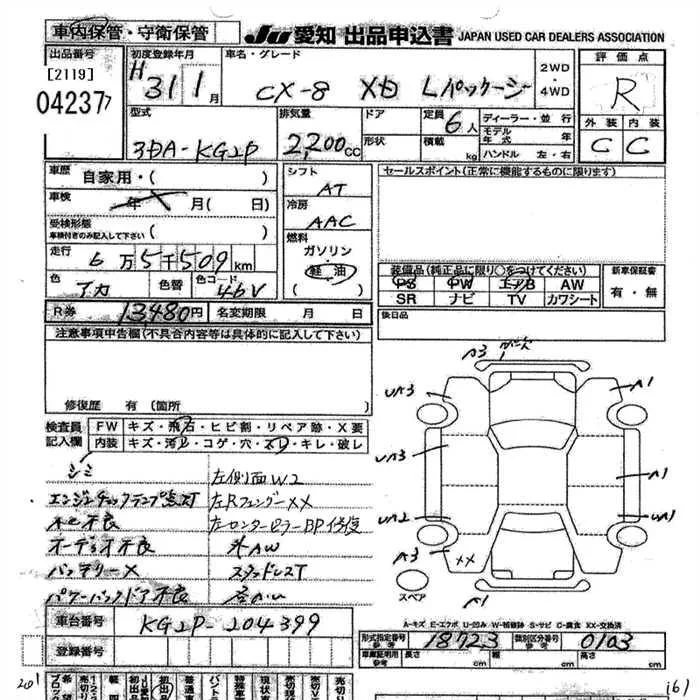 車内保管・守衛保管
JU 愛知 出品申込書 JAPAN USED CAR DEALERS ASSOCIATION
出品番号
[2119]
04237
初度登録年月
H 31 1 月
車名・グレード
CX-8 XD Lパッケージ
2WD
4WD
評価点
R
外装 内装
C C
型式
3DA-KG2P
排気量
2,200cc
ドア
形状
定員
6人
積載
kg
ディーラー・並行
モデル年式 年
ハンドル 左・右
車歴
自家用・( )
車検
年 月( 日)
受検形態
車検付きのみ記入して下さい ( )
走行
6万5千509km
色
アカ
色替
色コード
46V
シフト
AT
冷房
AAC
燃料
ガソリン・
軽油
( )
セールスポイント(正常に機能するものに限ります)
装備品(純正品に限り○をつけてください)
PS PW エアB AW
SR ナビ TV カワシート
新車保証書
有・無
後日品
R券 13,480円 名変期限 月 日
注意事項申告欄(不具合内容等は具体的に記入して下さい)
修復歴 有 〔箇所
検査員記入欄
FW キズ・飛石・ヒビ割・リペア跡・X要
内装 キズ・汚レ・コゲ・穴・スレ・キレ・破レ
シミ
左側面W2
エンジンチェックランプ点灯
左Rフェンダー XX
ナビ不良
左センターピラーBP修復
オーディオ不良
外AW
バッテリーX
スタッドレスT
パワーバックドア不良
A3
A1
UA3
UA3
A1
UA2
UA1
A3
XX
A1
スペア
A-キズ E-エクボ U-凹み W-補修跡 S-サビ C-腐食 XX-交換済
車台番号 KG2P-204399
登録番号
形式指定番号 参考 18723
類別区分番号 参考 0103
車庫証明用参考 長さ cm 幅 cm 高さ cm
201
161